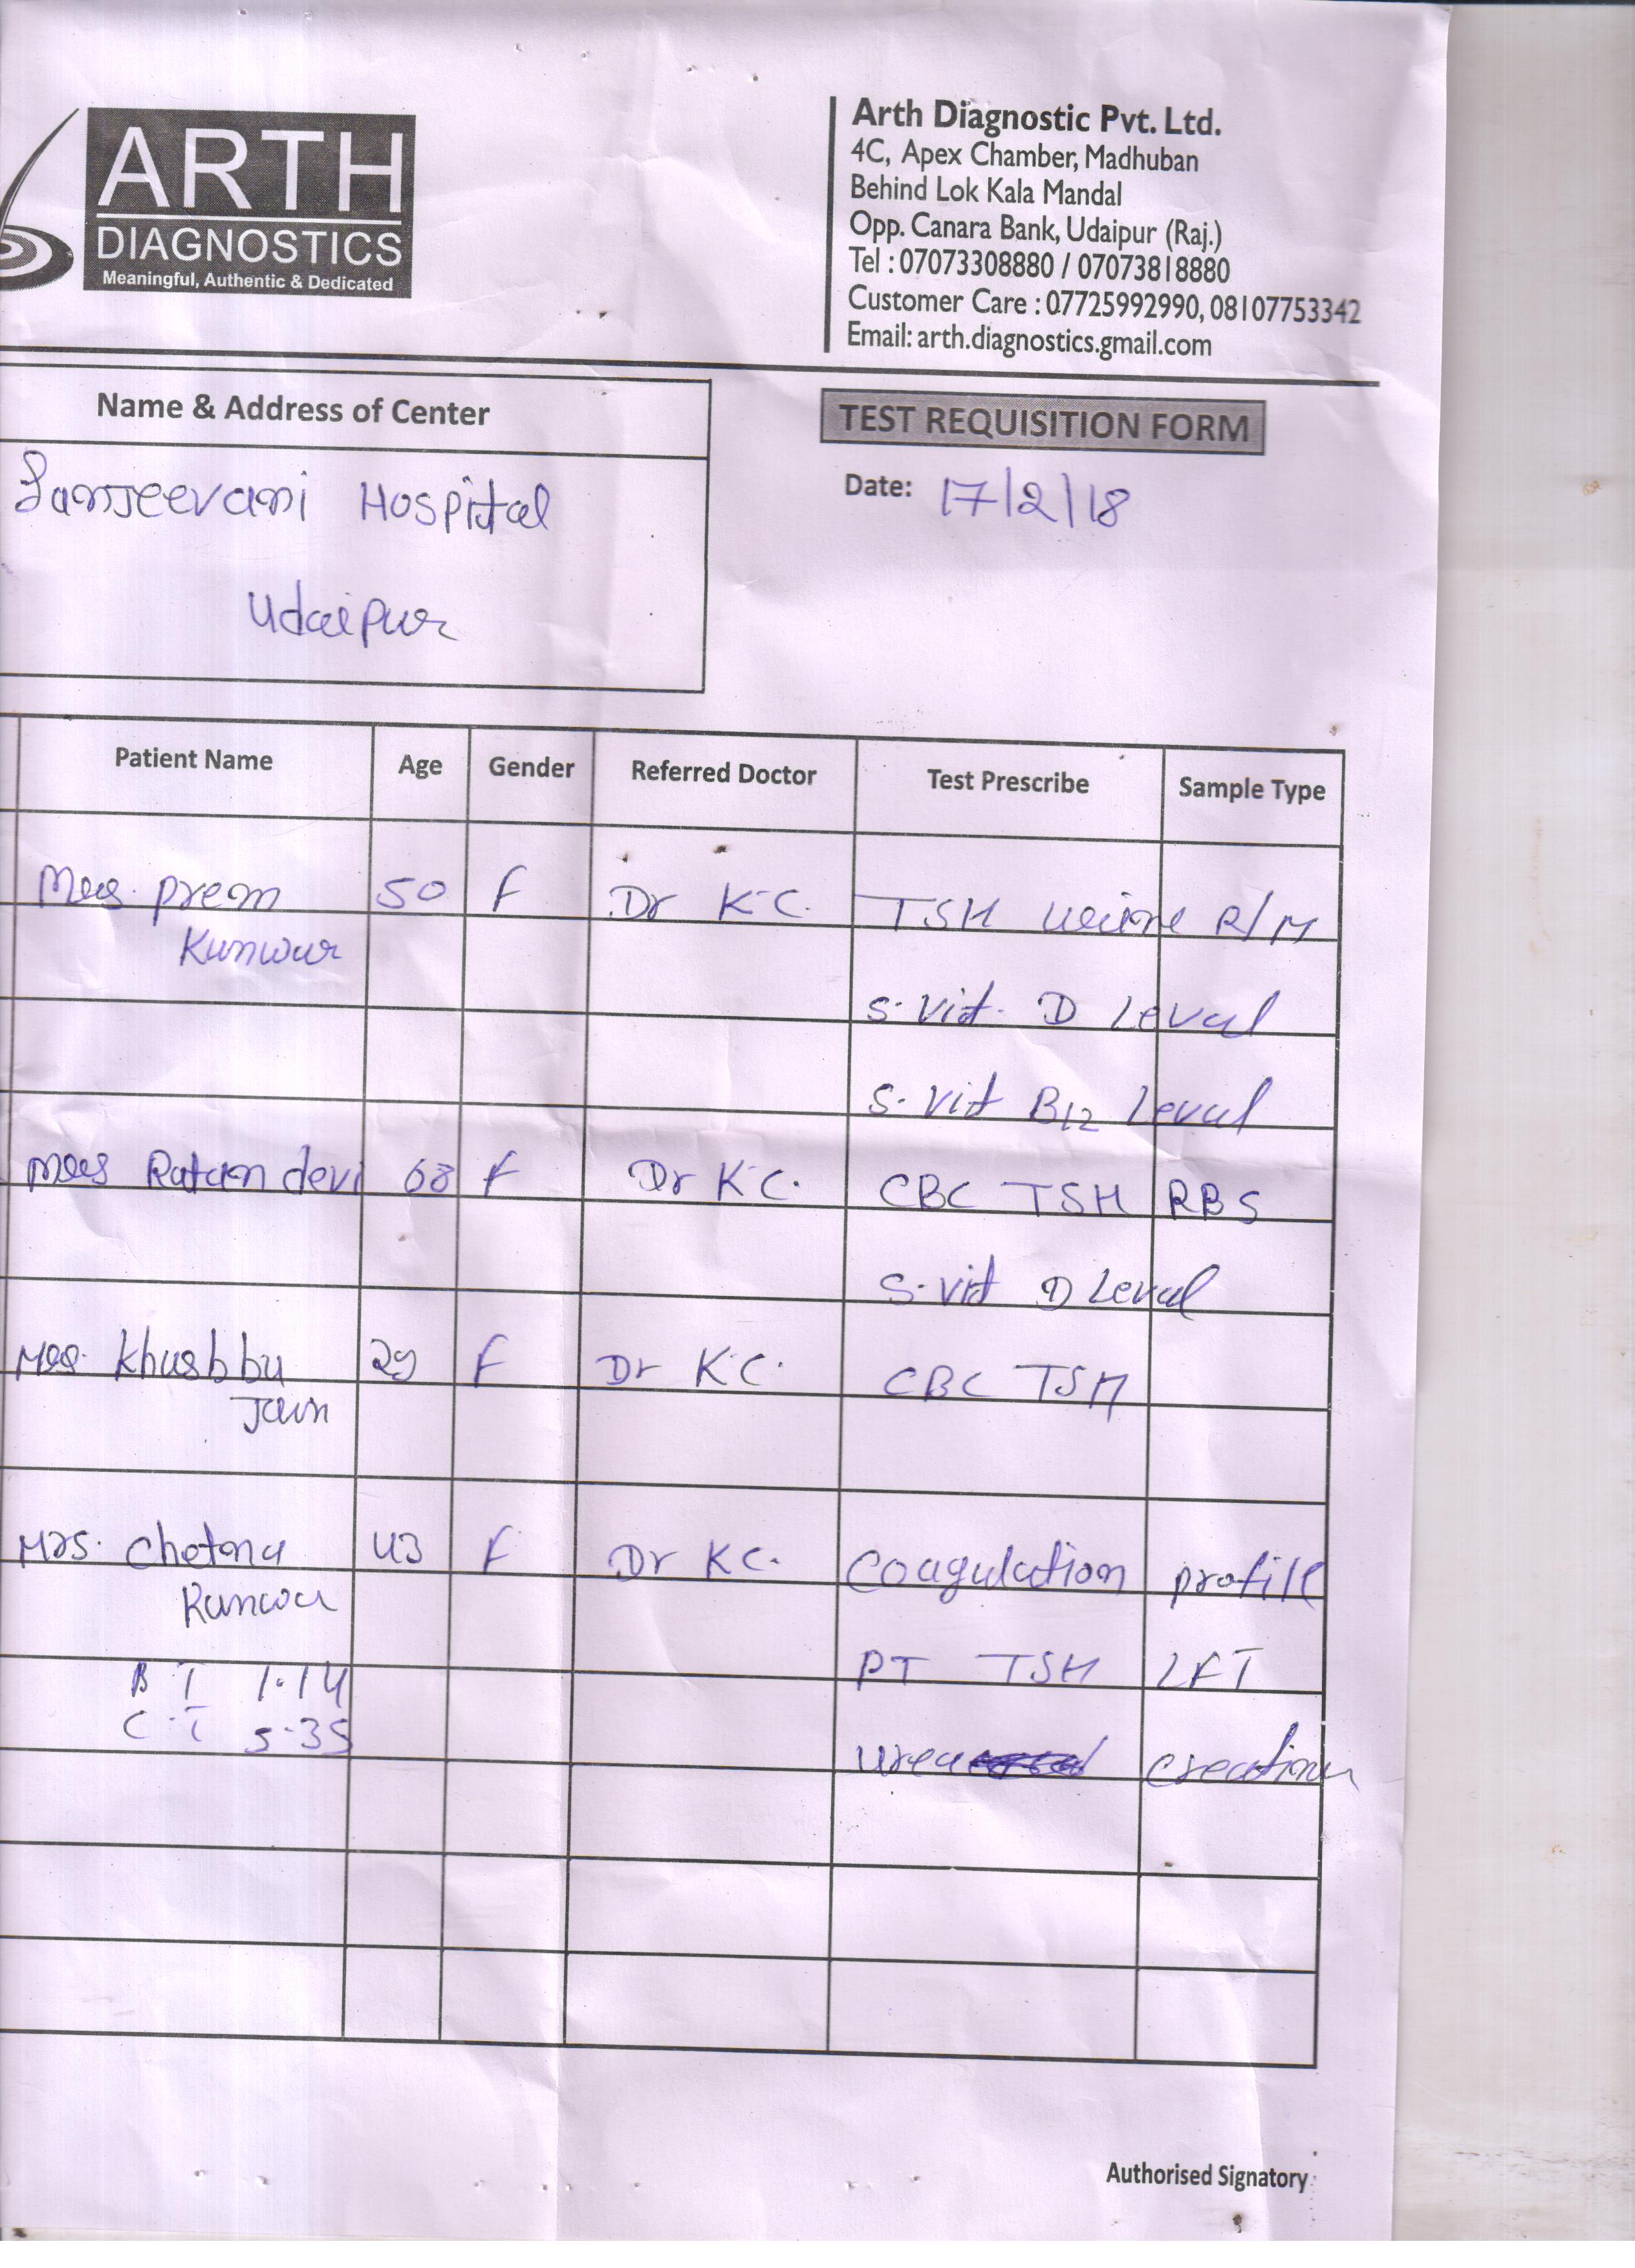 ARTH
DIAGNOSTICS
Meaningful, Authentic & Dedicated
Arth Diagnostic Pvt. Ltd.
4C, Apex Chamber, Madhuban
Behind Lok Kala Mandal
Opp. Canara Bank, Udaipur (Raj.)
Tel : 07073308880 / 07073818880
Customer Care : 07725992990, 08107753342
Email: arth.diagnostics.gmail.com
Name & Address of Center
Sanjeevani Hospital
Udaipur
TEST REQUISITION FORM
Date: 17/2/18
Patient Name Age Gender Referred Doctor Test Prescribe Sample Type
Mrs. Prem 50 F Dr K.C. TSH Urine R/M
Kunwar
S. Vit. D Leval
S. Vit B12 Leval
Mrs Ratan devi 68 F Dr K.C. CBC TSH RBS
S. Vit D Leval
Mrs. Khusbbu 29 F Dr K.C. CBC TSH
Jain
Mrs. Chetna 43 F Dr K.C. Coagulation profile
Kunwar
B T 1.14 PT TSH LFT
C.T 5.35
Urea creatinin
Authorised Signatory